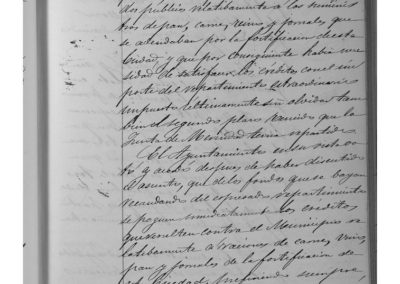 dos publicó relatibamente a los suminis
tros de pan, carne, vino y jornales, que
se adeudaban por la fortificacion de esta
Ciudad, y que por consiguiente habia ne
sidad de satisfacer los creditos con el im
porte del repartimiento extraordinario
impuesto ultimamente sin olvidar tam
bien el segundo plazo vencido que la
Junta de Merindad tenia repartido
El Ayuntamiento en su vista
y acordó despues de haber discutido
asunto, que de los fondos que se bayan
recaudando del espresado repartimiento
se paguen inmediatamente los creditos
que resulten contra el Municipio re
latibamente a raciones de carne, vino,
pan y jornales de la fortificacion de
Ciudad, prefiriendo siempre,